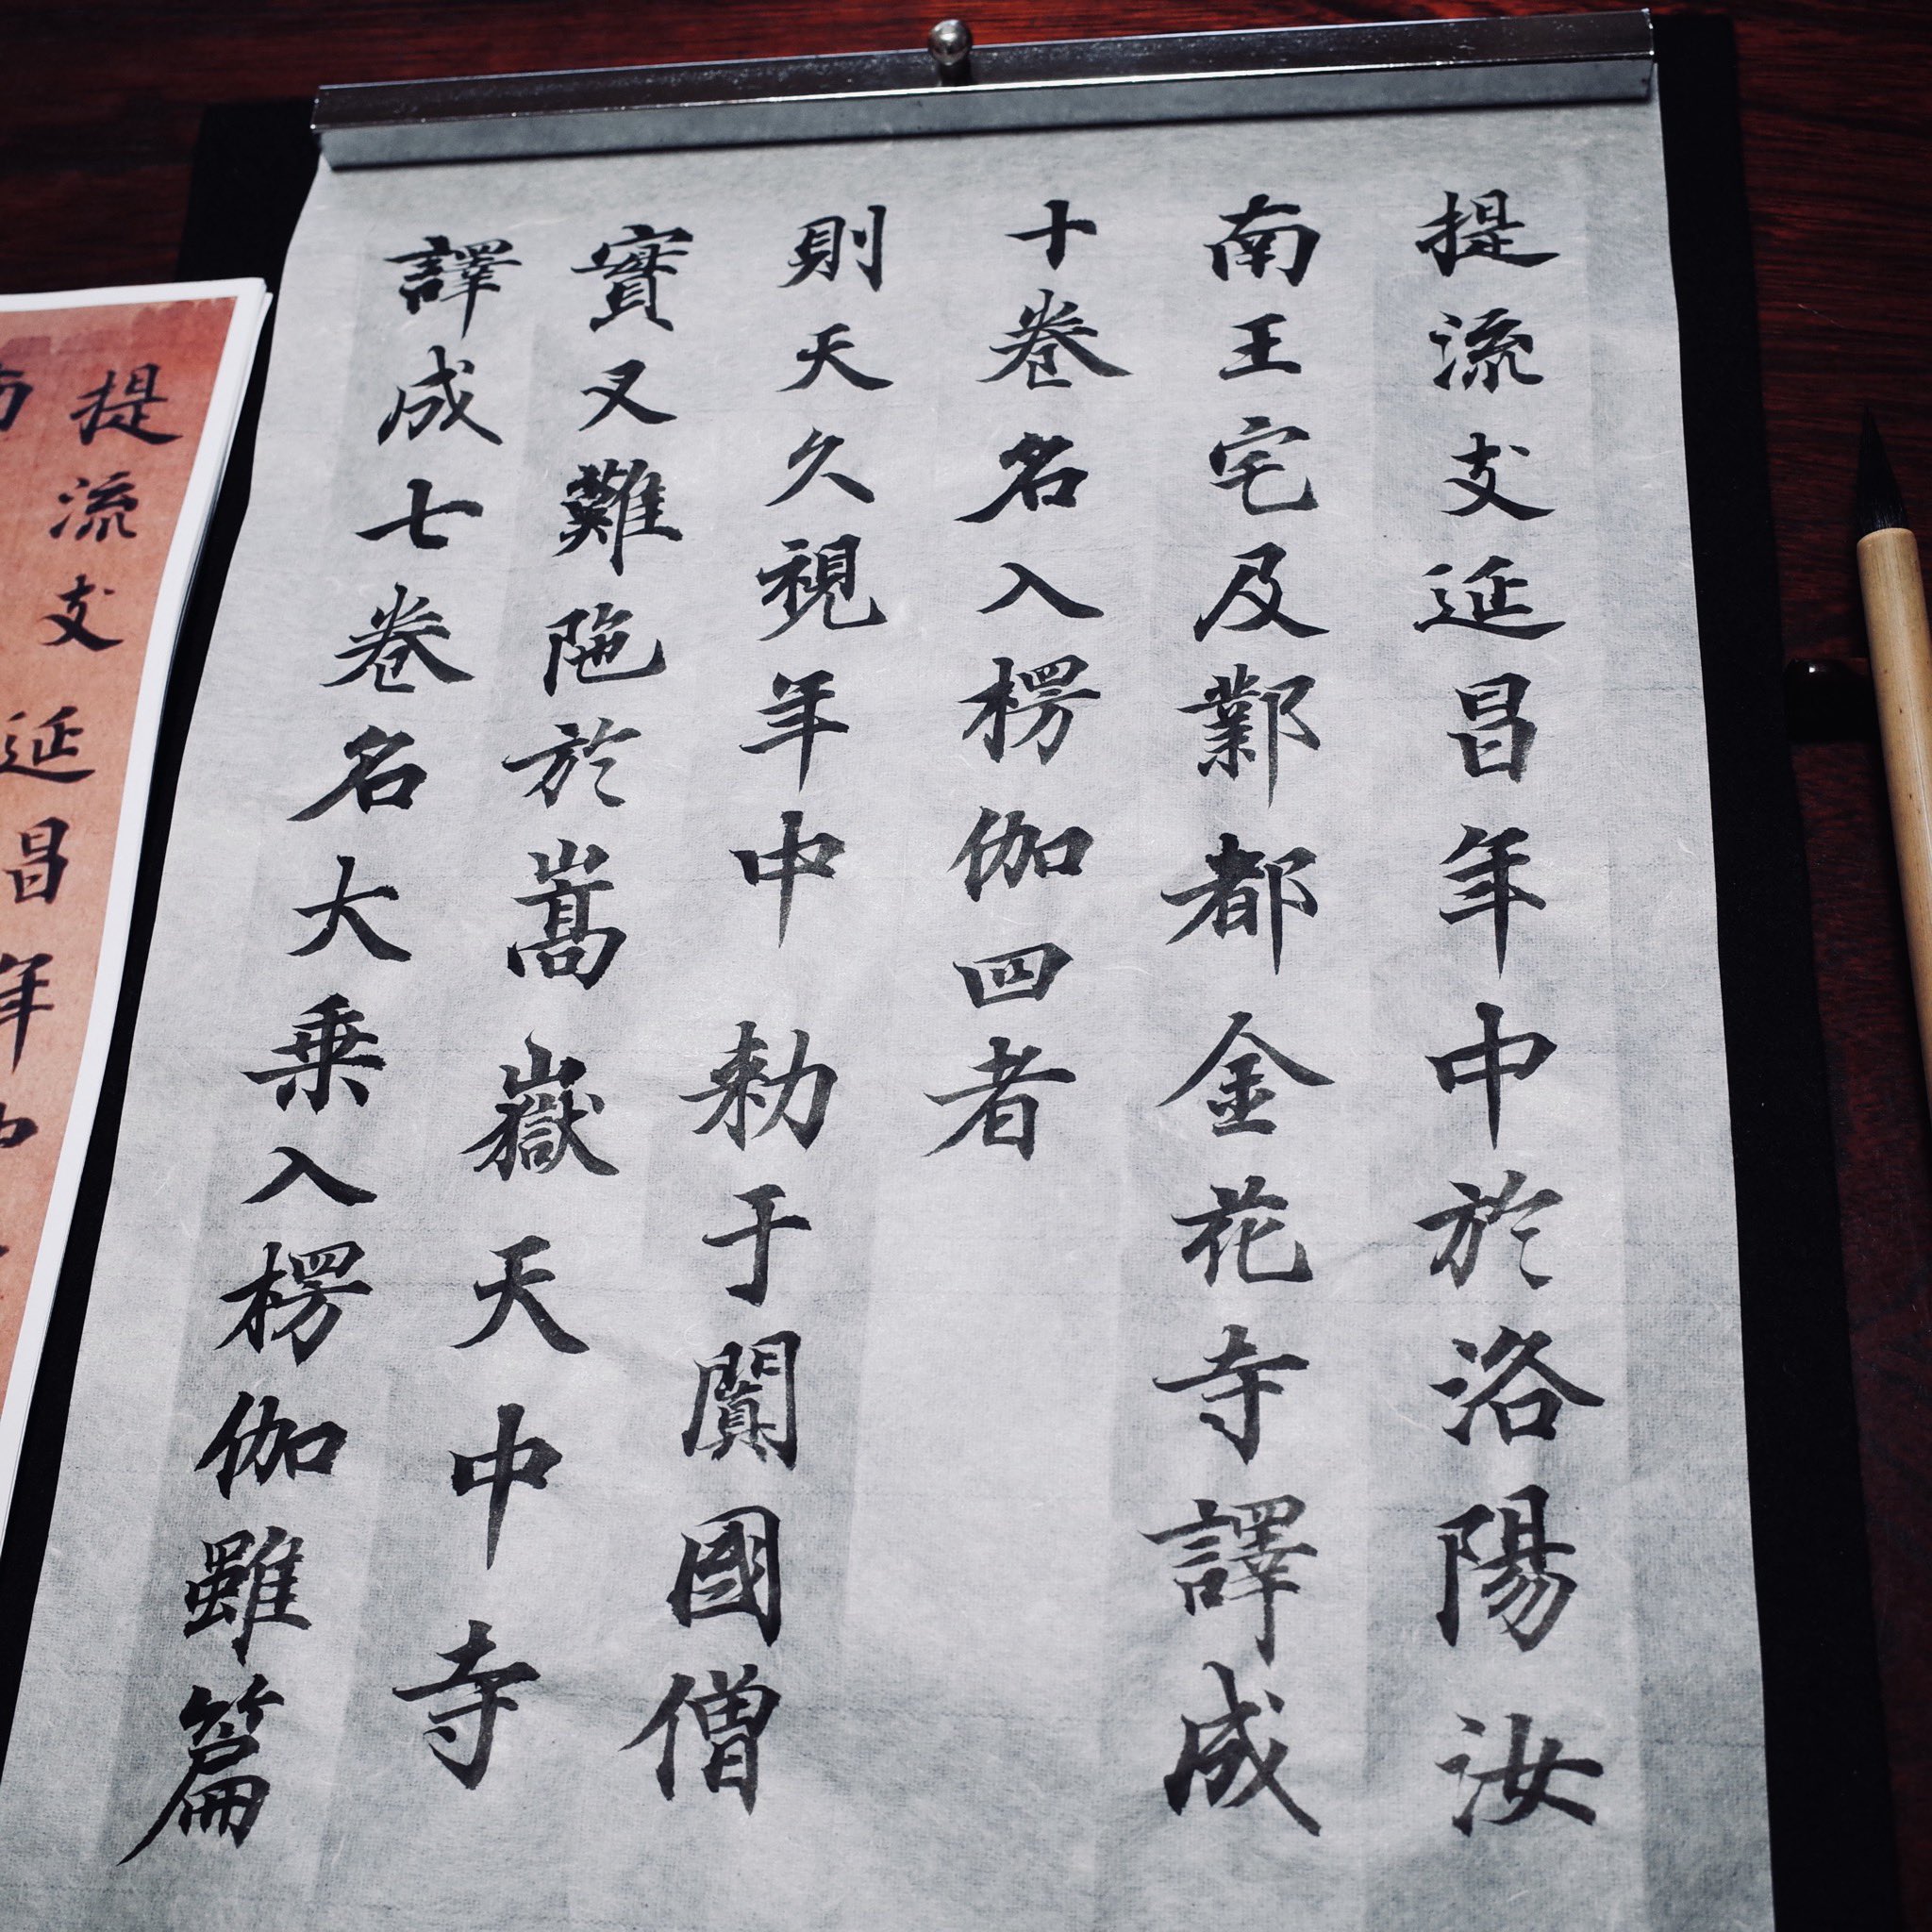 提流支延昌年中於洛陽汝
南王宅及鄴都金花寺譯成
十卷名入楞伽四者
則天久視年中勑于闐國僧
實叉難陁於嵩嶽天中寺
譯成七卷名大乗入楞伽雖篇
提流支延昌年